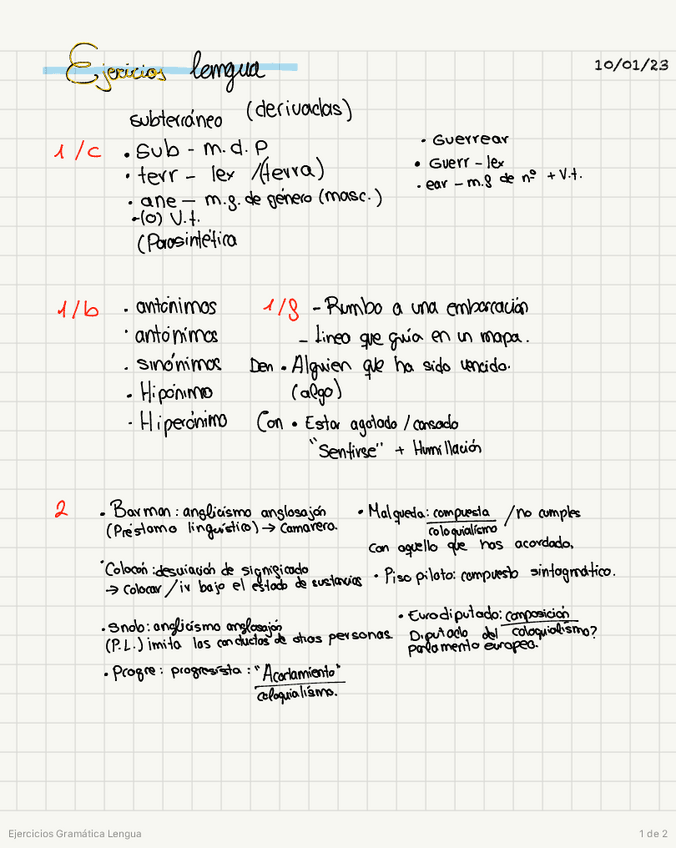 Ejercicios lengua
10/01/23
subterráneo (derivadas)
1/c
• Sub - m.d.P
• terr - lex /(terra)
• ane - m.g. de género (masc.)
-(o) V.t.
(Parasintética
• Guerrear
• Guerr - lex
• ear - m.g de nº + V.t.
1/b
• antónimos
• antónimos
• sinónimos
• Hipónimo
• Hiperónimo
1/g
- Rumbo a una embarcación
- Lineo que guía en un mapa.
Den • Alguien que ha sido vencido.
(algo)
Con • Estar agotado / cansado
"Sentirse" + Humillación
2
• Barman: anglicismo anglosajón
(Préstamo linguístico) → Camarero.
• Colocón: desviación de significado
→ colocar / ir bajo el estado de sustancias
• Snob: anglicismo anglosajón
(P.L.) imita las conductas de otras personas.
• Progre: progresista: "Acortamiento"
coloquialismo.
• Malqueda: compuesta / no cumples
coloquialismo
con aquello que has acordado.
• Piso piloto: compuesto sintagmático.
• Eurodiputado: composición
Diputado del coloquialismo?
parlamento europeo.
Ejercicios Gramática Lengua
1 de 2